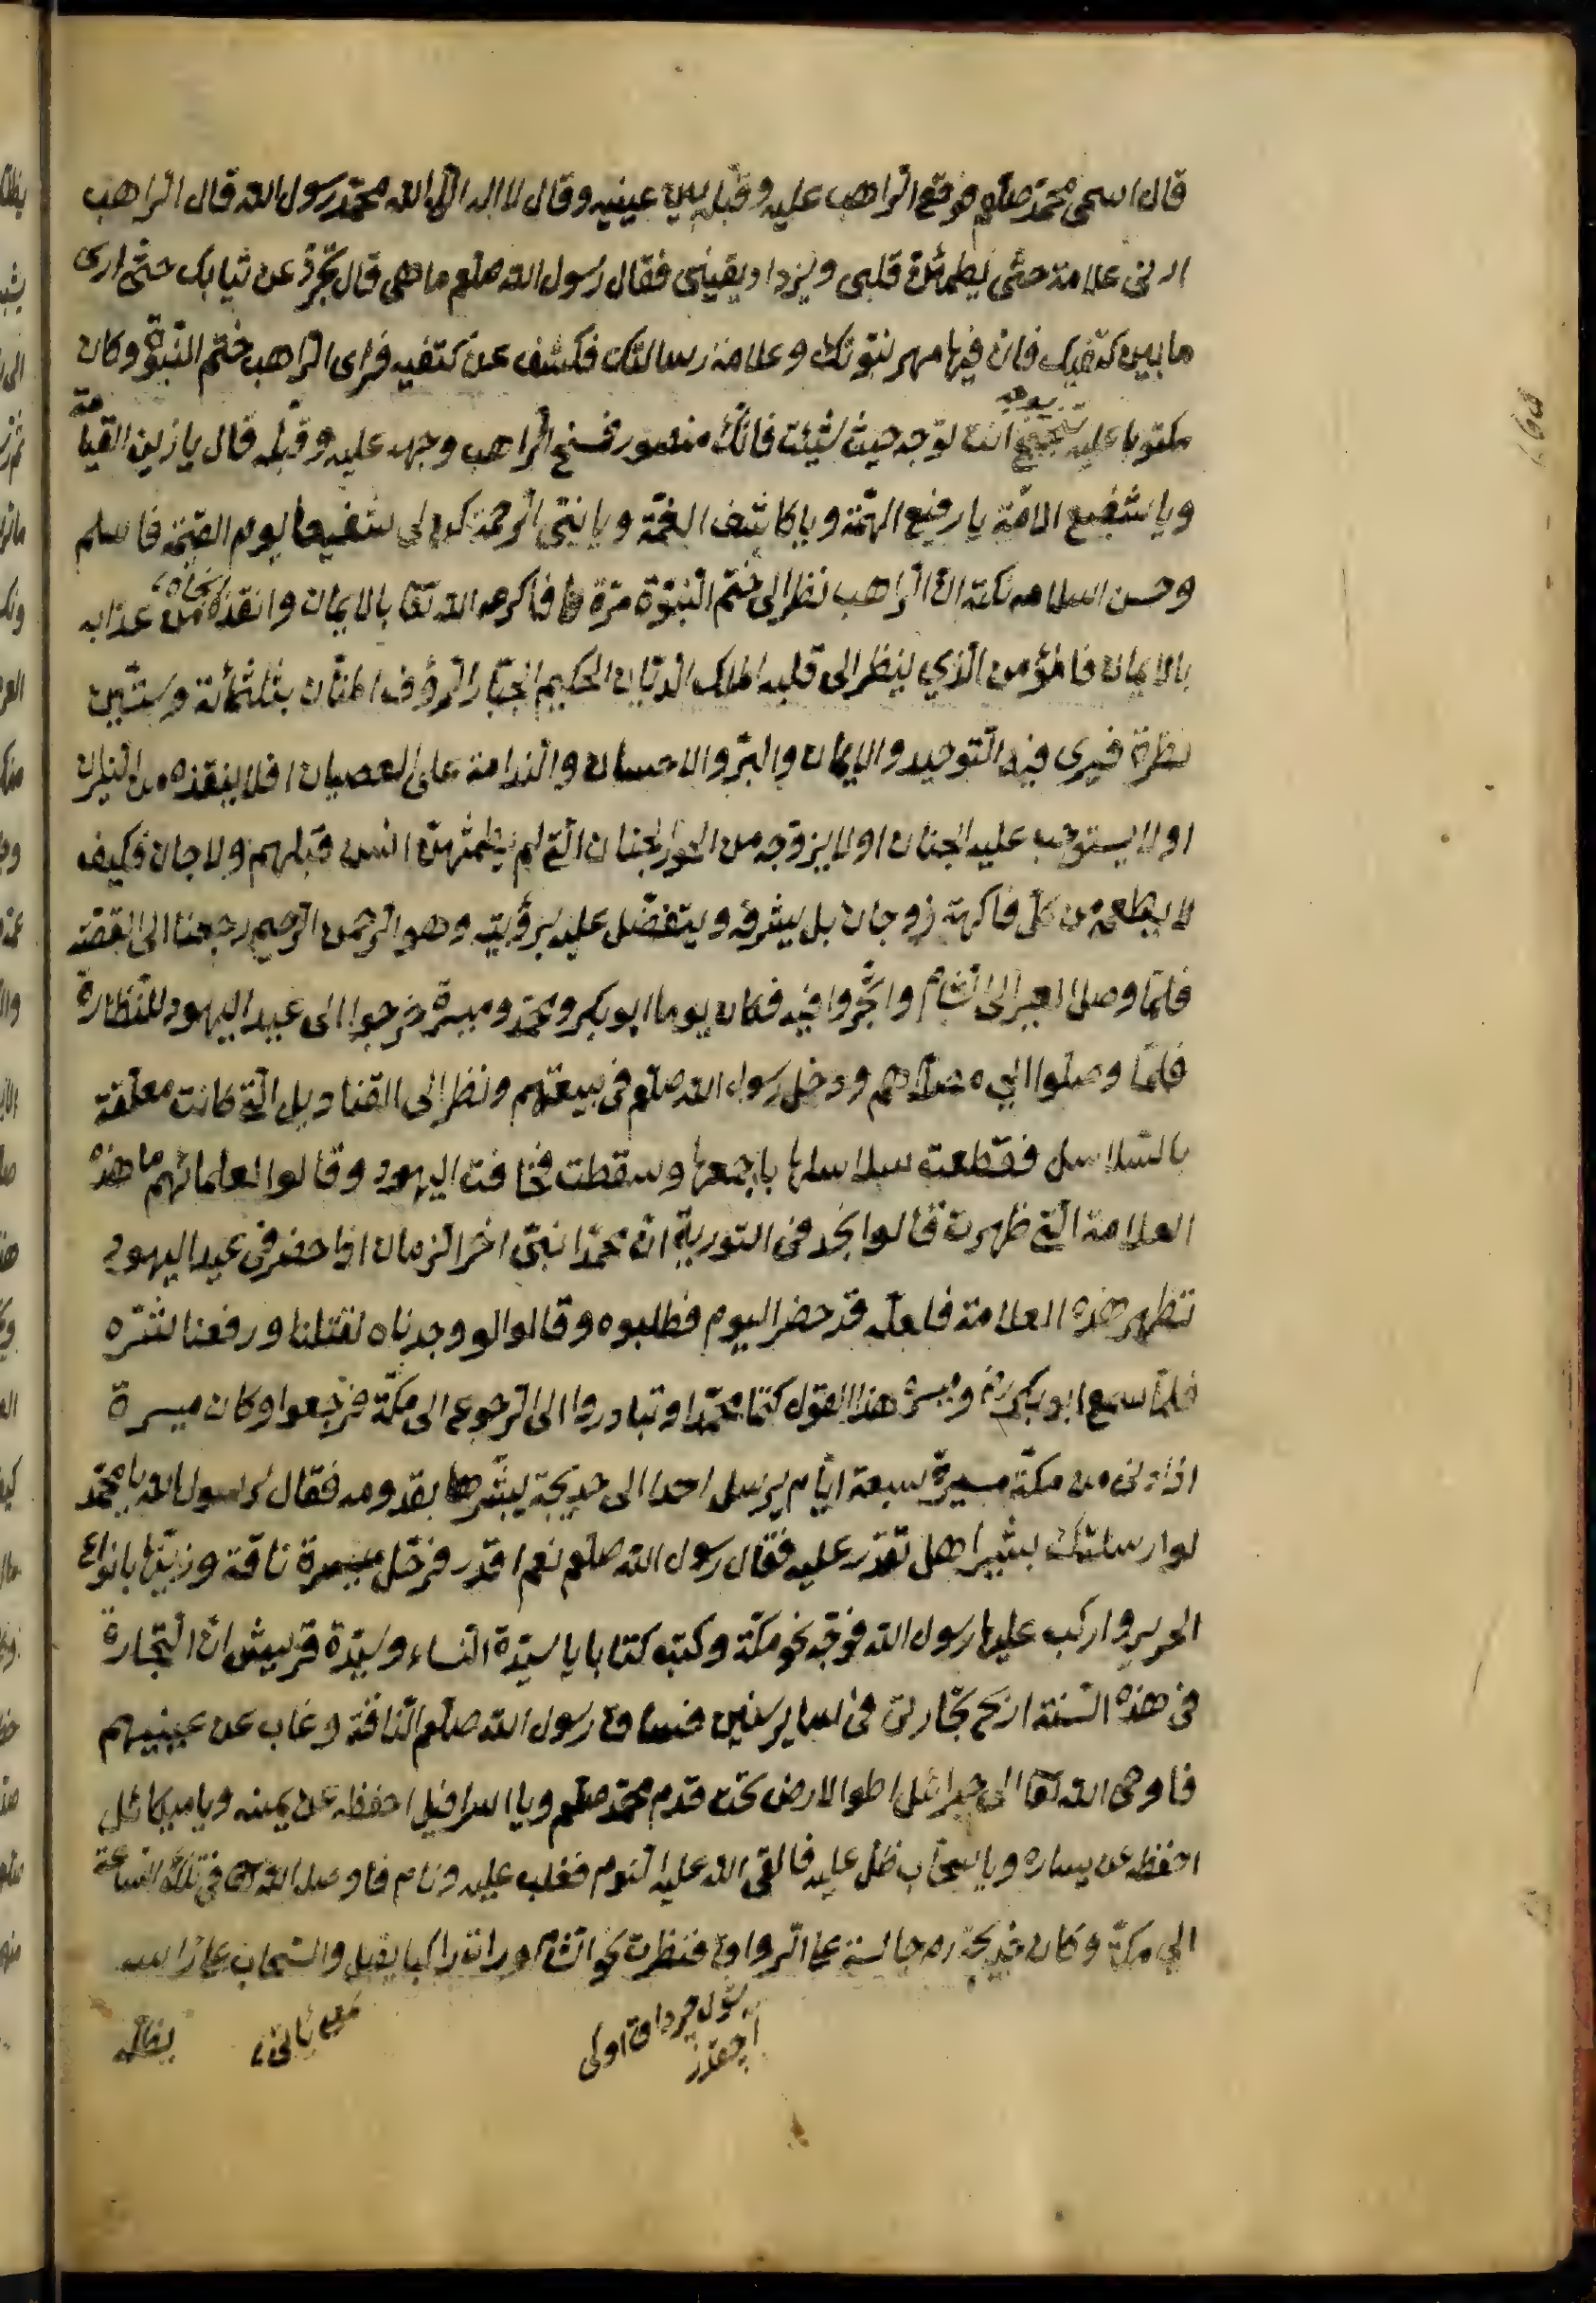 قال اسمى محمد صلعم فوقع الراهب عليه وقبله بين عينيه وقال لا اله الا الله محمد رسول الله قال الراهب
ارنى علامة حتى يطمئن قلبى ويزداد يقينى فقال رسول الله صلعم ما هى قال تجرد عن ثيابك حتى ارى
ما بين كتفيك فان فيها مهر نبوتك وعلامة رسالتك فكشف عن كتفيه فراى الراهب ختم النبوة وكان
مكتوبا عليه انت توجه حيث شئت فانك منصور فسخ الراهب وجهه عليه وقبله قال يا زين القيامة
ويا شفيع الامة يا رفيع الهمة ويا كاشف الغمة ويا نبى الرحمة كن لى شفيعا يوم القيمة فاسلم
وحسن اسلامه نكتة ان الراهب نظر الى ختم النبوة مرة فاكرمه الله تعا بالايمان وانقذه من عذابه
بالايمان فالمؤمن الذي ينظر الى قلبه الملك الديان الحكيم الجبار الرؤف المنان بثلثمائة وستين
نظرة فيرى فيه التوحيد والايمان والبر والاحسان والندامة على العصيان افلا ينقذه من النيران
اولا يستوجب عليه الجنان اولا يزوجه من الحوار لجنان التى لم يطمثهن انس قبلهم ولا جان فكيف
لا يطعمه من كل فاكهة زوجان بل يشرفه ويتفضل عليه برؤيته وهو الرحمن الرحيم رجعنا الى القصة
فلما وصل العير الى الشام واتجروا فيه فكان يوما ابو بكر ومحمد وميسرة خرجوا الى عيد اليهود للنظارة
فلما وصلوا الى مصلاهم ودخل رسول الله صلعم فى بيعتهم ونظر الى القناديل التى كانت معلقة
بالسلاسل فقطعت سلاسلها باجمعها وسقطت فخافت اليهود وقالوا لعلمائهم ما هذه
العلامة التى ظهرت قالوا نجد فى التورية ان محمدا نبى اخر الزمان اذا حضر فى عيد اليهود
تظهر هذه العلامة فلعله قد حضر اليوم فطلبوه وقالوا لو وجدناه لقتلنا ورفعنا شره
فلما سمع ابو بكر رض وميسرة هذا القول كتما محمدا وتبادروا الى الرجوع الى مكة فرجعوا وكان ميسرة
اذا دنى من مكة مسيرة سبعة ايام يرسل احدا الى خديجة يبشرها بقدومه فقال لرسول الله يا محمد
لو ارسلتك بشيرا هل تقدر عليه فقال رسول الله صلعم نعم اقدر فرحل ميسرة ناقة وزينها بانواع
الحرير واركب عليها رسول الله فوجه نحو مكة وكتب كتابا يا سيدة النساء وسيدة قريش ان التجارة
فى هذه السنة اربح تجارتى فى ساير سنين فساق رسول الله صلعم الناقة وغاب عن عينيهم
فاوحى الله تعا الى جبرائل اطو الارض تحت قدم محمد صلعم ويا اسرافيل احفظه عن يمينه ويا ميكائل
احفظه عن يساره ويا سحاب ظل عليه فالقى الله عليه النوم فغلب عليه ونام فاوصله الله تعا فى تلك الساعة
الى مكة وكان خديجة رض جالسة على الرواق فنظرت نحو الشام ورات راكبا يقبل والسحاب على راسه
يظله